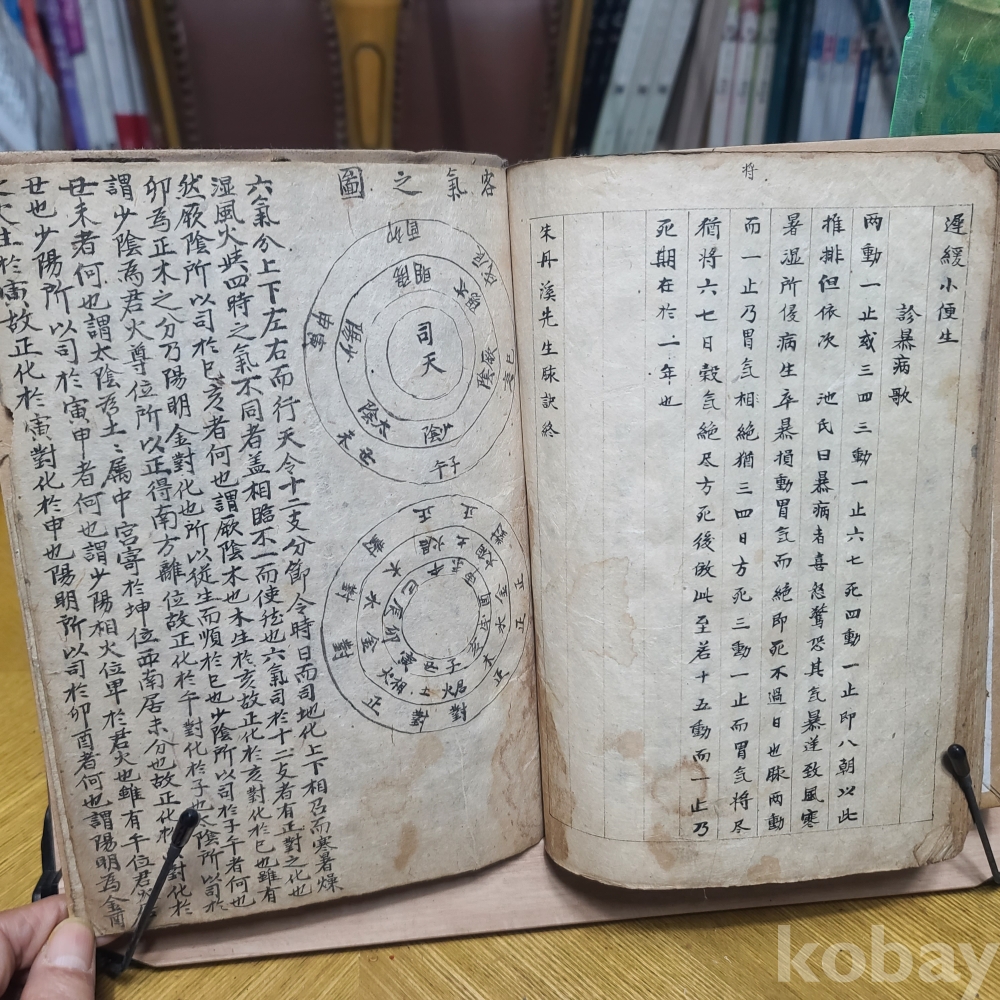 将
遲緩小便生
診暴病歌
兩動一止或三四三動一止六七死四動一止即八朝以此
推排但依次 池氏曰暴病者喜怒驚恐其気暴逆致風寒
暑湿所侵病生卒暴損動胃気而絶即死不過日也脉兩動
而一止乃胃気相絶猶三四日方死三動一止而胃気将尽
猶将六七日穀気絶尽方死後倣此至若十五動而一止乃
死期在於一年也
朱丹溪先生脉訣終
客氣之圖
司天
陽明
卯酉
少陽
寅申
太陰
丑未
少陰
子午
厥陰
巳亥
太陽
辰戌
六氣分上下左右而行天令十二支分節令時日而司地化上下相召而寒暑燥
湿風火與四時之氣不同者盖相臨不一而使然也六氣司於十二支者有正對之化也
然厥陰所以司於巳亥者何也謂厥陰木也木生於亥故正化於亥對化於巳也雖有
卯為正木之分乃陽明金對化也所以從生而順於巳也少陰所以司於子午者何也
謂少陰為君火尊位所以正得南方離位故正化於午對化於子也太陰所以司於
丑未者何也謂太陰為土土属中宮寄於坤位西南居未分也故正化於對化於
丑也少陽所以司於寅申者何也謂少陽相火位卑於君火也雖有午位君
火生於寅故正化於寅對化於申也陽明所以司於卯酉者何也謂陽明為金酉